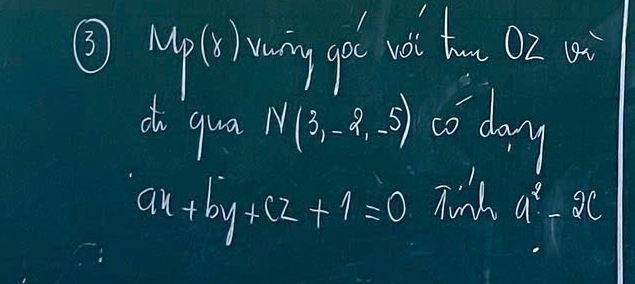 ③ Mp(γ) vuông góc với trục OZ và
đi qua N(3,-2,-5) có dạng
ax+by+cz+1=0 Tính a²-2c